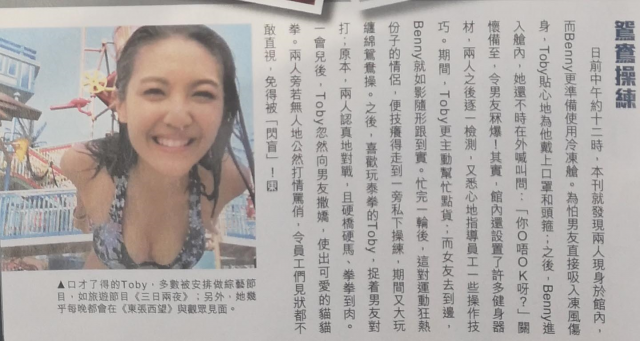 鴛鴦操練
日前中午約十二時，本刊就發現兩人現身於館內，
而Benny更準備使用冷凍艙。為怕男友直接吸入凍風傷
身，Toby貼心地為他戴上口罩和頭箍；之後，Benny進
入艙內，她還不時在外喊叫問：「你O唔OK呀？」關
懷備至，令男友冧爆！其實，館內還設置了許多健身器
材，兩人之後逐一檢測，又悉心地指導員工一些操作技
巧。期間，Toby更主動幫忙點貨；而女友去到邊，
Benny就如影隨形跟到實。忙完一輪後，這對運動狂熱
份子的情侶，便技癢得走到一旁私下操練，期間又大玩
纏綿鴛鴦操。之後，喜歡玩泰拳的Toby，捉着男友對
打；原本，兩人認真地對戰，且硬橋硬馬、拳拳到肉。
一會兒後，Toby忽然向男友撒嬌，使出可愛的貓貓
拳。兩人旁若無人地公然打情罵俏，令員工們見狀都不
敢直視，免得被「閃盲」！
▲口才了得的Toby，多數被安排做綜藝節
目，如旅遊節目《三日兩夜》；另外，她幾
乎每晚都會在《東張西望》與觀眾見面。